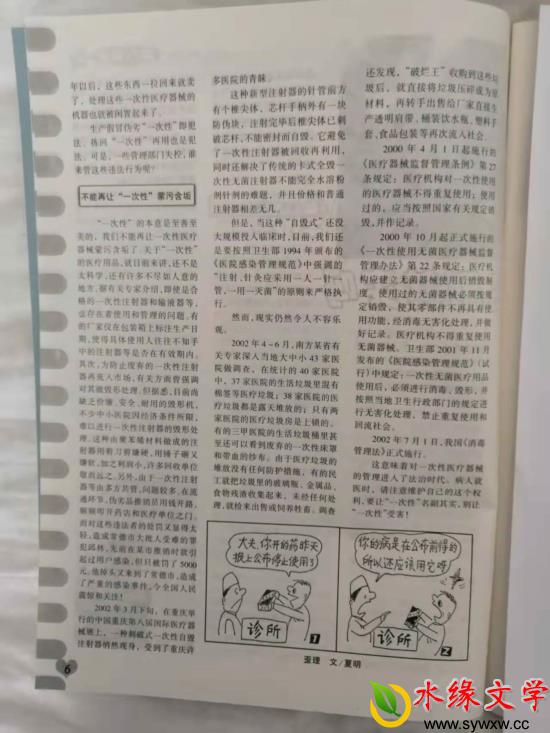 年以后，这些东西一拉回来就卖
了，处理这些一次性医疗器械的
机器也就被闲置起来了。
生产假冒伪劣“一次性”即犯
法，将回“一次性”再用也是犯
法。可是，一些管理部门失控，谁
来管这些违法行为呢？
不能再让“一次性”蒙污含垢
“一次性”的本意是至善至
美的，我们不能再让一次性医疗
器械蒙污含垢了。关于“一次性”
的医疗用品，就目前来讲，还不是
太科学，还有许多不尽如人意的
地方。据有关专家介绍，即使是合
格的一次性注射器和输液器等，
也存在着使用和管理的问题。有
的厂家仅在包装箱上标注生产日
期，使得具体使用人往往不知手
中的注射器等是否在有效期内。
其次，为防止废弃的一次性注射
器再流入市场，有关方面曾强调
对其做毁形处理。但据悉，目前尚
缺乏价廉、安全、耐用的毁形机，
不少中小医院因经济条件所限，
难以进行一次性注射器的毁形处
理。这种由聚苯烯材料做成的注
射器用剪刀剪嫌硬，用锤子砸又
嫌软，加之利润小，许多回收单位
敬而远之。另外，由于一次性注射
器等由多方共管，问题较多，在流
通环节，伪劣品推销员用钱开路，
频频叩开药店和医疗单位之门，
而对这些违法者的处罚又显得太
轻。造成常德市大批人受难的罪
犯邱林，先前在某市推销时就引
起过用户感染，但只被罚了5000
元，他掉头又来到了常德市，造成
了严重的感染事件，令全国人民
震惊和关注！
2002年3月下旬，在重庆举
行的中国重庆第八届国际医疗器
械展上，一种刺破式一次性自毁
注射器悄然现身，受到了重庆许
多医院的青睐。
这种新型注射器的针管前方
有个椎尖体，芯杆手柄外有一块
防伪块，注射完毕后椎尖体已刺
破芯杆，不能密封而自毁。它避免
了一次性注射器被回收再利用，
同时还解决了传统的卡式全毁一
次性无菌注射器不能完全水溶粉
剂针剂的难题，并且价格和普通
注射器相差无几。
但是，当这种“自毁式”还没
大规模投入临床时，目前，我们还
是要按照卫生部1994年颁布的
《医院感染管理规范》中强调的
“注射、针灸应采用一人一针一
管，一用一灭菌”的原则来严格执
行。
然而，现实仍然令人不容乐
观。
2002年4~6月，南方某省有
关专家深入当地大中小43家医
院做调查。在统计的40家医院
中，37家医院的生活垃圾里混有
棉签等医疗垃圾；38家医院的医
疗垃圾都是露天堆放的；只有两
家医院的医疗垃圾房是上锁的，
有的三甲医院的生活垃圾桶里甚
至还可以看到废弃的一次性床罩
和带血的纱布。由于医疗垃圾的
堆放没有任何防护措施，有的民
工就把垃圾里的玻璃瓶、金属品、
食物残渣收集起来，未经任何处
理，就检来出售或饲养牲畜。调查
还发现，“破烂王”收购到这些垃
圾后，就直接将垃圾压碎成为原
材料，再转手出售给厂家直接生
产透明肩带，桶装饮水瓶、塑料手
套、食品包装等再次流入社会。
2000年4月1日起施行的
《医疗器械监督管理条例》第27
条规定：医疗机构对一次性使用
的医疗器械不得重复使用；使用
过的，应当按照国家有关规定销
毁，并作记录。
2000年10月起正式施行的
《一次性使用无菌医疗器械监督
管理办法》第22条规定：医疗机
构应建立无菌器械使用后销毁制
度。使用过的无菌器械必须按规
定销毁，使其零部件不再具有使
用功能，经消毒无害化处理，并做
好记录。医疗机构不得重复使用
无菌器械。卫生部2001年11月
发布的《医院感染管理规范》（试
行）中规定：一次性无菌医疗用品
使用后，必须进行消毒、毁形，并
按照当地卫生行政部门的规定进
行无害化处理，禁止重复使用和
回流社会。
2002年7月1日，我国《消毒
管理法》正式施行。
这意味着对一次性医疗器械
的管理进入了法治时代。病人就
医时，请注意维护自己的这个权
利，要让“一次性”名副其实，别让
“一次性”受害！
大夫，你开的药昨天
报上公布停止使用了
诊所
1
你的病是在公布前得的
所以还应该用它呀
诊所
2
歪理 文/夏明
6
水缘文学
www.sywxw.cc